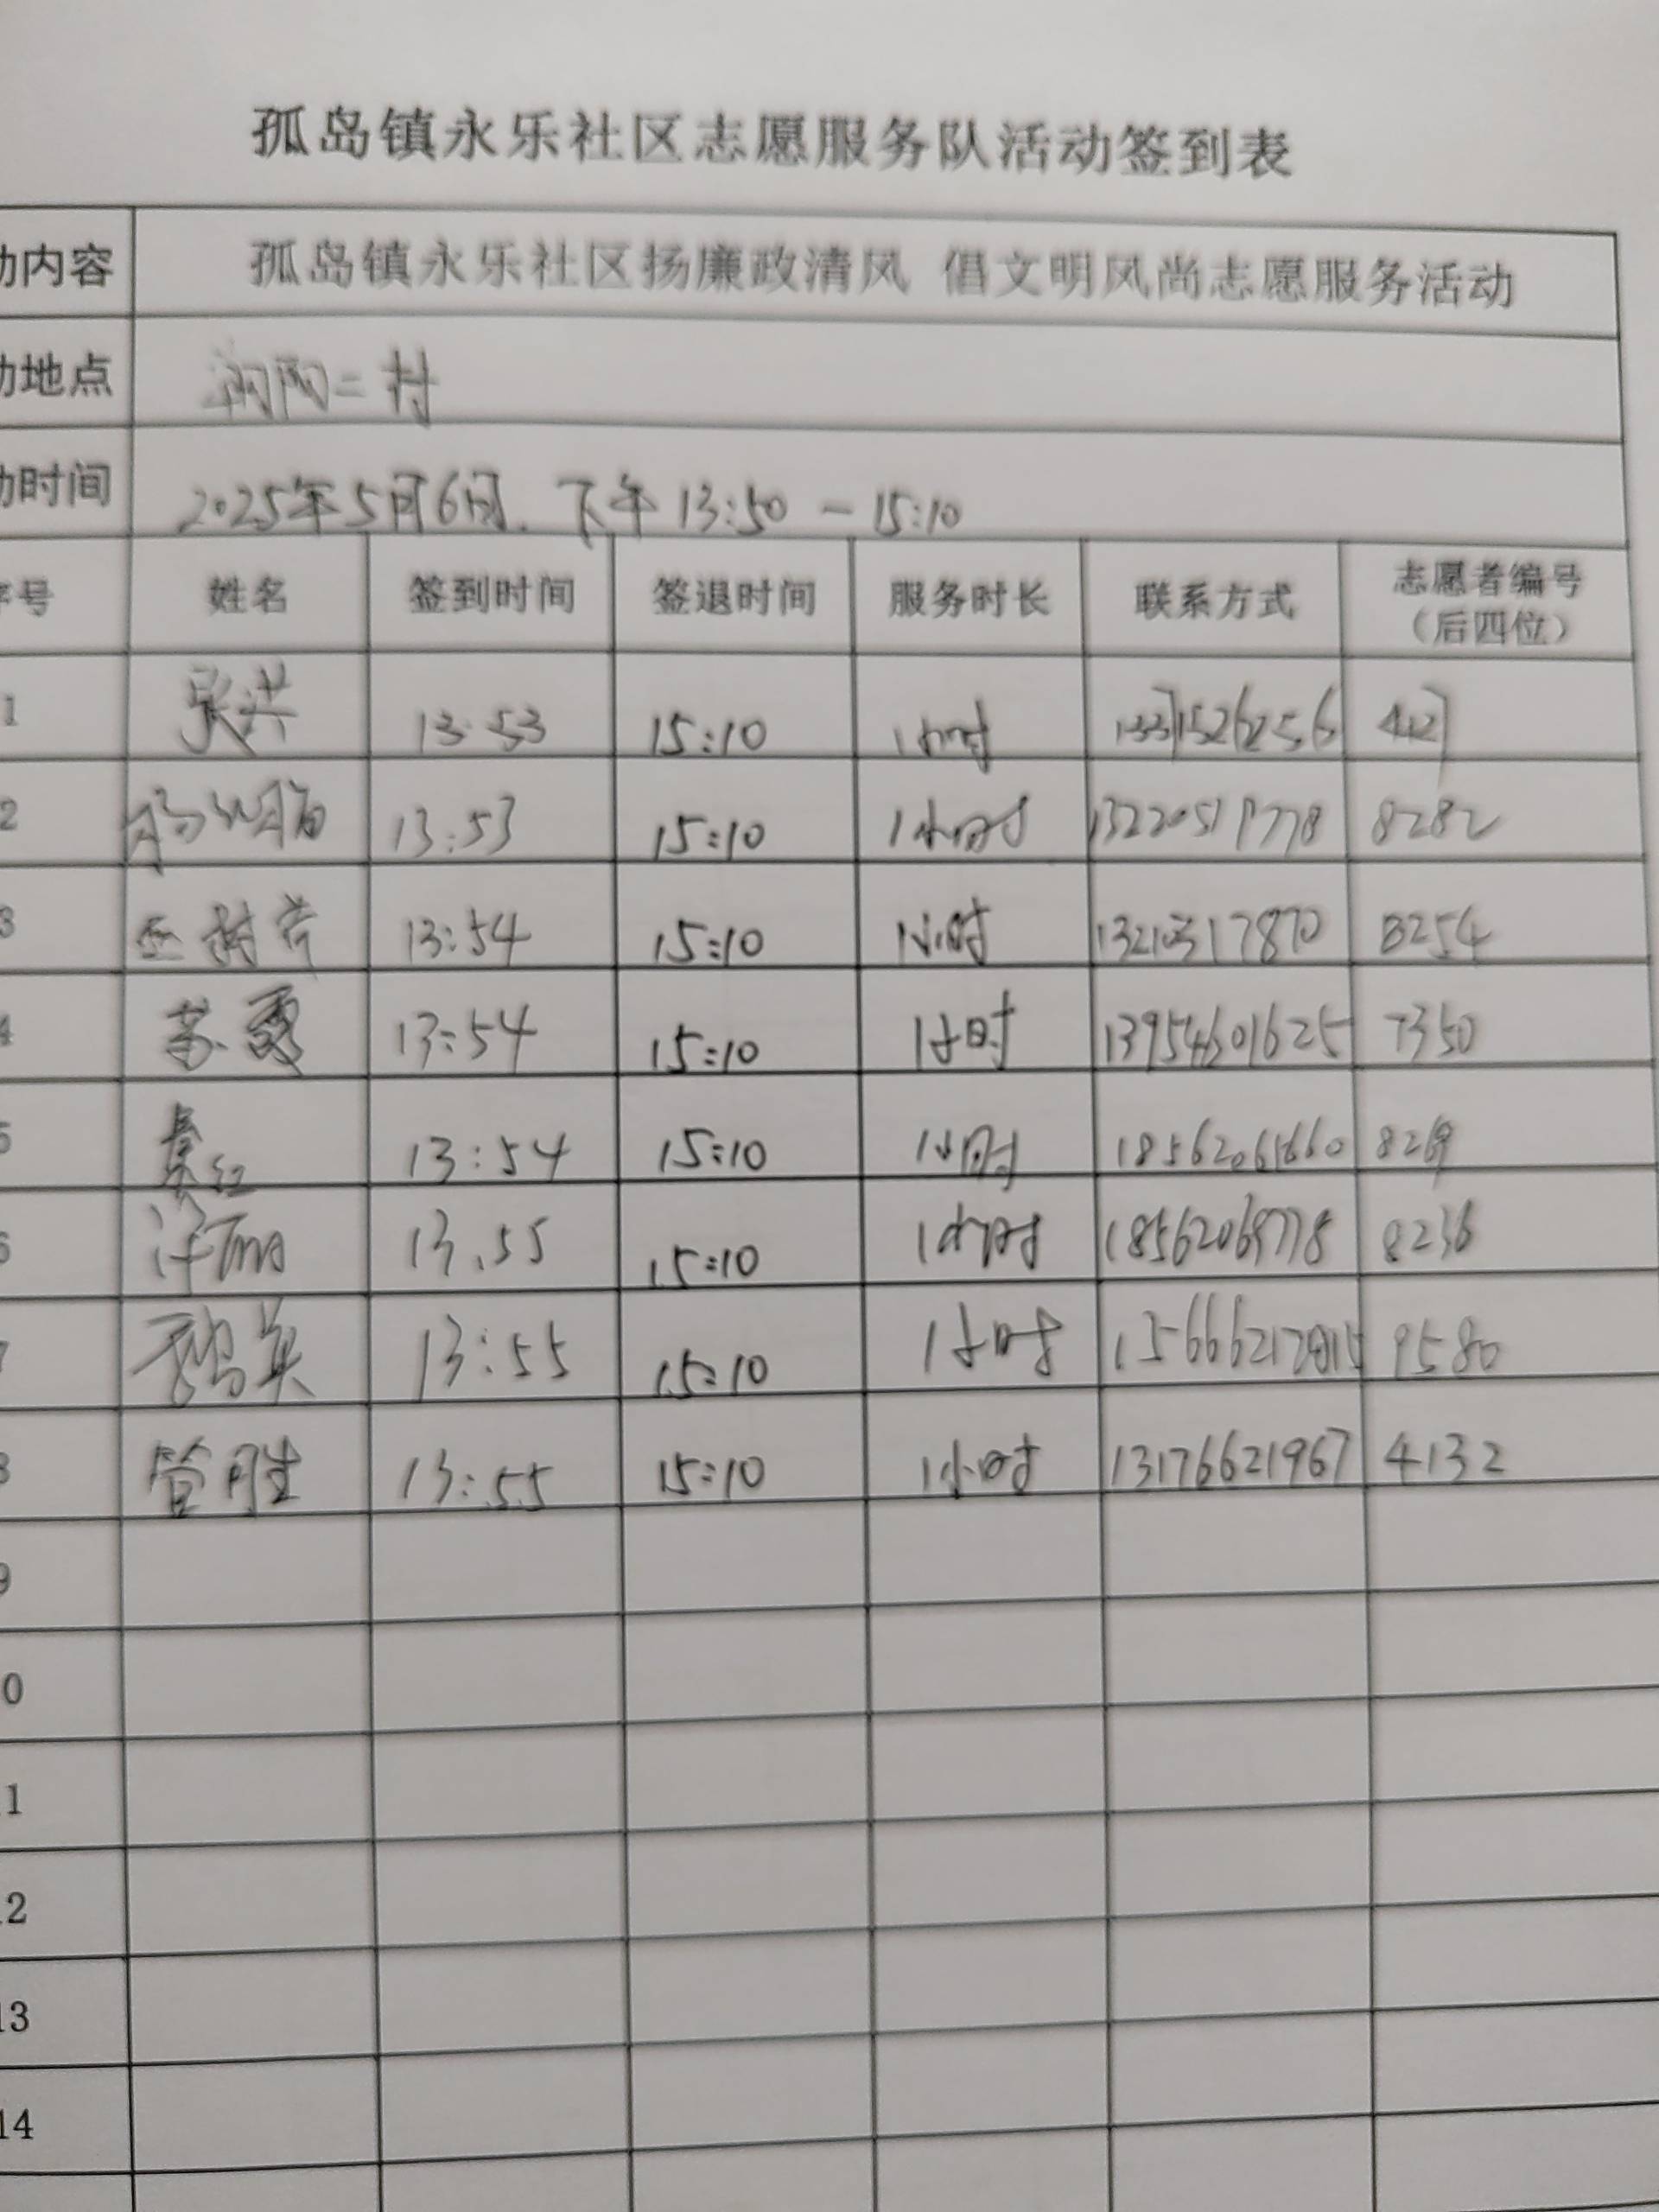 孤岛镇永乐社区志愿服务队活动签到表
动内容 孤岛镇永乐社区扬廉政清风 倡文明风尚志愿服务活动
动地点 二村
动时间 2025年5月6日. 下午 13:50 - 15:10
序号 姓名 签到时间 签退时间 服务时长 联系方式 志愿者编号
（后四位）
1 张洪 13:53 15:10 1小时
2 13:53 15:10 1小时 8282
3 13:54 15:10 1小时 8254
4 苏霞 13:54 15:10 1小时 13954601625 7350
5 秦红 13:54 15:10 1小时
6 13.55 15:10 1小时 8236
7 13:55 15:10 1小时 9580
8 管胜 13:55 15:10 1小时 13176621967 4132
9
0
1
2
13
14